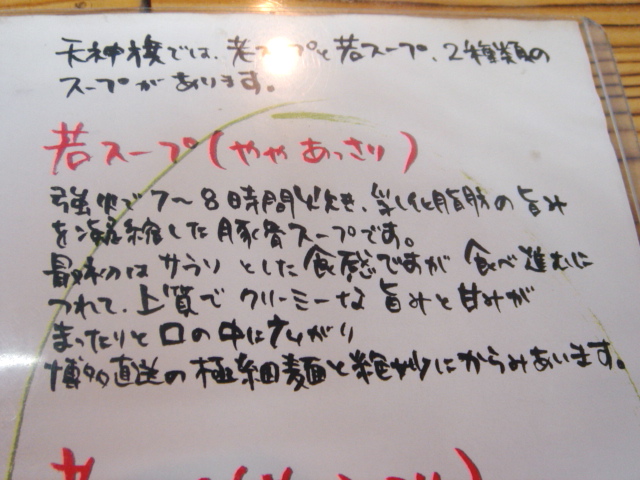 天神棲では、老スープと若スープ、2種類の
スープがあります。
若スープ(ややあっさり)
強火で7〜8時間炊き、乳化脂肪の旨み
を凝縮した豚骨スープです。
最初はサラリとした食感ですが食べ進むに
つれて、上質でクリーミーな旨みと甘みが
まったりと口の中に広がり
博多直送の極細麺と絶妙にからみあいます。